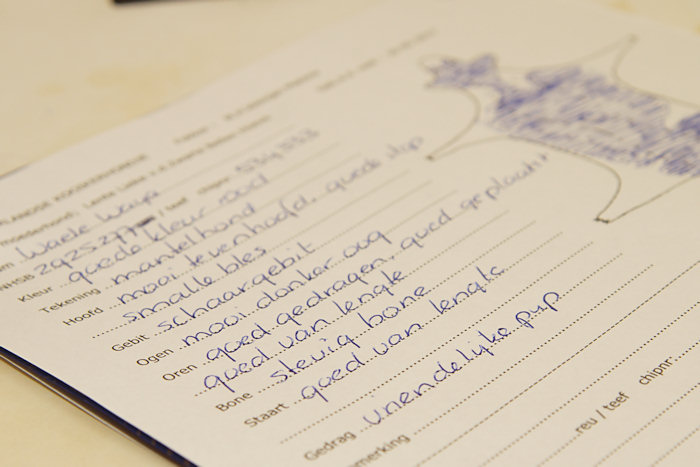 Waele Waya
NHSB 2925277 / teef chipnr: 534353
Kleur goede kleur rood
Tekening mantelhond
Hoofd mooi tevenhoofd, goede stop
smalle bles
Gebit schaargebit
Ogen mooi donker oog
Oren goed gedragen, goed geplaatst
goed van lengte
Bone stevig bone
Staart goed van lengte
Gedrag vriendelijke pup
merking
reu / teef chipnr: